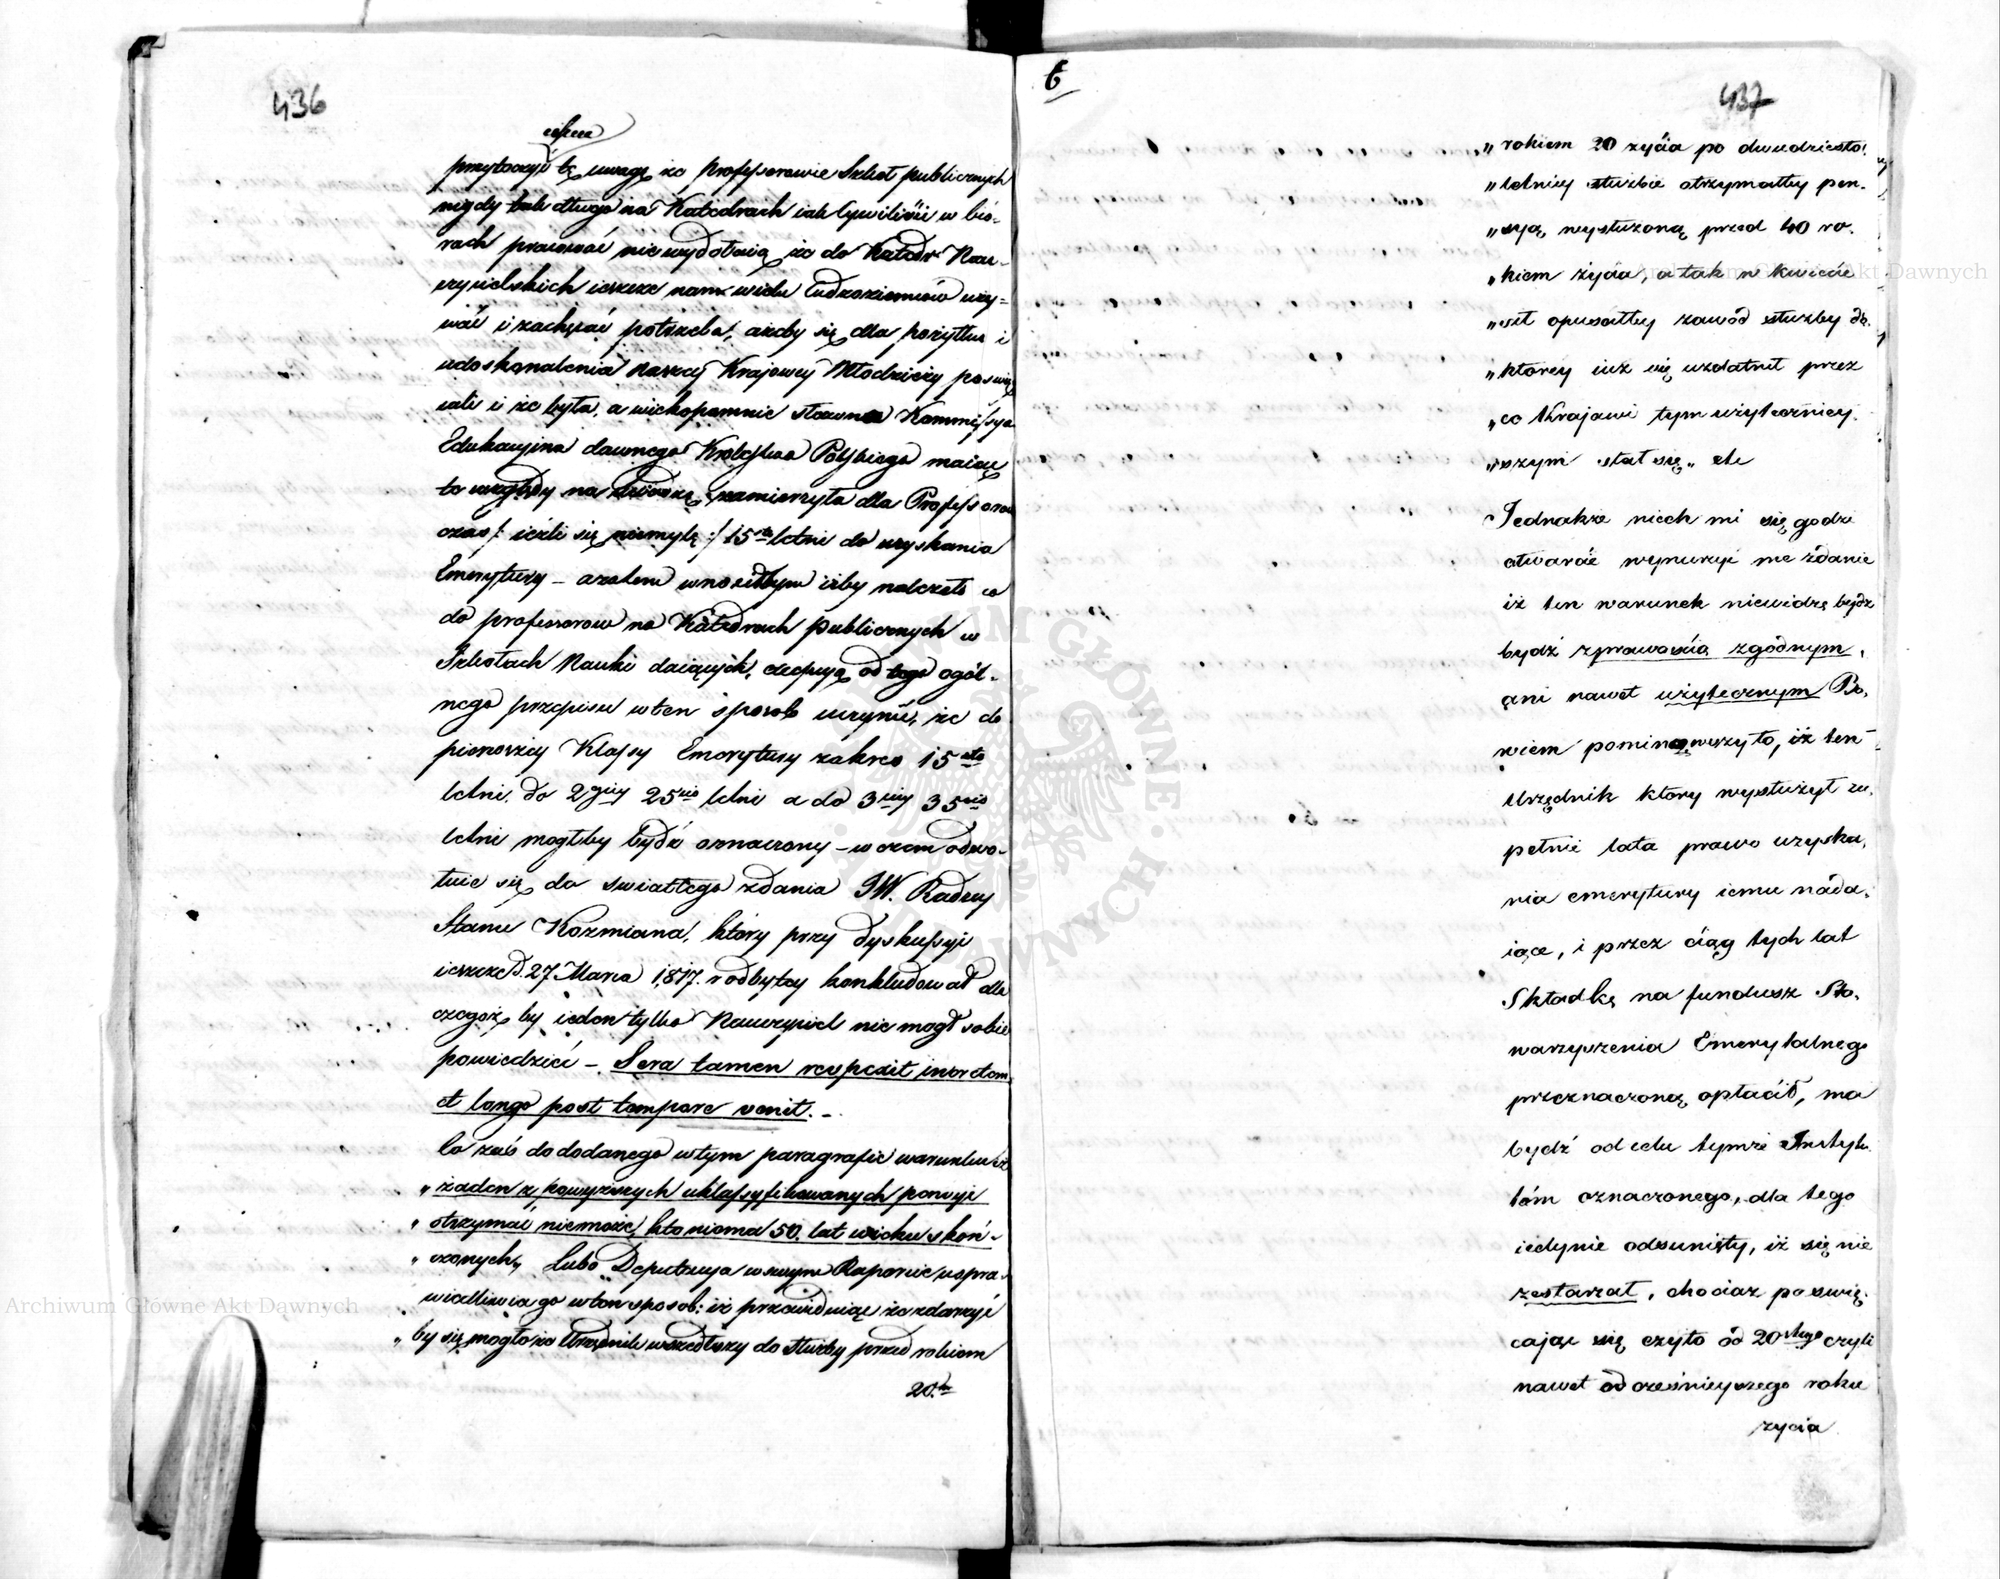 436
ieszcze
przytoczyć tę uwagę że Professorowie Szkół publicznych
nigdy tak długo na Katedrach iak Cywiliści w biu-
rach pracować nie wydołaią że do Katedr Nau-
czycielskich ieszcze nam wielu Cudzoziemców uży-
wać i zachęcać potrzeba, ażeby się dla pożytku i
udoskonalenia naszey Kraiowey Młodzieży poświę
cali i że była, a wiekopomnie sławna Kommissya
Edukacyina dawnego Królestwa Polskiego maiąc
te względy na uwadze, zamierzyła dla Professorow
czas /: ieżli się niemylę :/ 15sto letni do uzyskania
Emerytury – azatem wnosiłbym iżby należało co
do professorow na Katedrach publicznych w
Szkołach Nauki daiących, excepcyą od tego ogól-
nego przepisu w ten sposob uczynić, że do
pierwszey Klassy Emerytury zakres 15sto
letni, do 2giey 25cio letni a do 3ciey 35cio
letni mogłby bydź oznaczony – w czem odwo-
łuie się do swiatłego zdania JW. Radcy
Stanu Kozmiana, który przy dyskussyi
ieszcze d. 27 Marca 1817. r odbytey konkludował dla
czegoż by ieden tylko Nauczyciel nie mogł sobie
powiedzieć – Sera tamen respexit inertem
et longo post tempore venit. –
Co zaś do dodanego w tym paragrafie warunku iż
„ żaden z powyższych uklassyfikowanych pensyi
„ otrzymać niemoże, kto niema 50. lat wieku skoń-
„ czonych„ lubo Deputacya w swym Raporcie uspra-
wiedliwia go w ten sposob: iż przewiduiąc że zdarzyć
„ by się mogło że Urzędnik wszedłszy do służby przed rokiem
20.tm
6
437
„ rokiem 20 życia po dwudziesto-
„ letniey służbie otrzymałby pen-
„ syą, wysłużoną przed 40 ro-
„ kiem życia, a tak w kwiecie
„ sił opuściłby zawód służby do
„ ktorey iuż się uzdatnił przez
„ co Kraiowi tym użyteczniey-
„ szym stał się„ etc
Jednakże niech mi się godzi
otwarcie wynurzyć me zdanie
iż ten warunek niewidzę bydź
bydź z prawością zgodnym,
ani nawet użytecznym Bo-
wiem pominąwszy to, iż ten
Urzędnik ktory wysłużył zu-
pełnie lata prawo uzyska-
nia emerytury iemu nada-
iące, i przez ciąg tych lat
Składkę na fundusz Sto-
warzyszenia Emerytalnego
przeznaczoną opłacił, ma
bydź od celu tymże Instytu
tóm oznaczonego, dla tego
iedynie odsunięty, iż się nie
zestarzał, chociaż poświę-
caiąc się czyto od 20stego czyli
nawet od cześnieyszego roku
życia
Archiwum Główne Akt Dawnych
Archiwum Główne Akt Dawnych